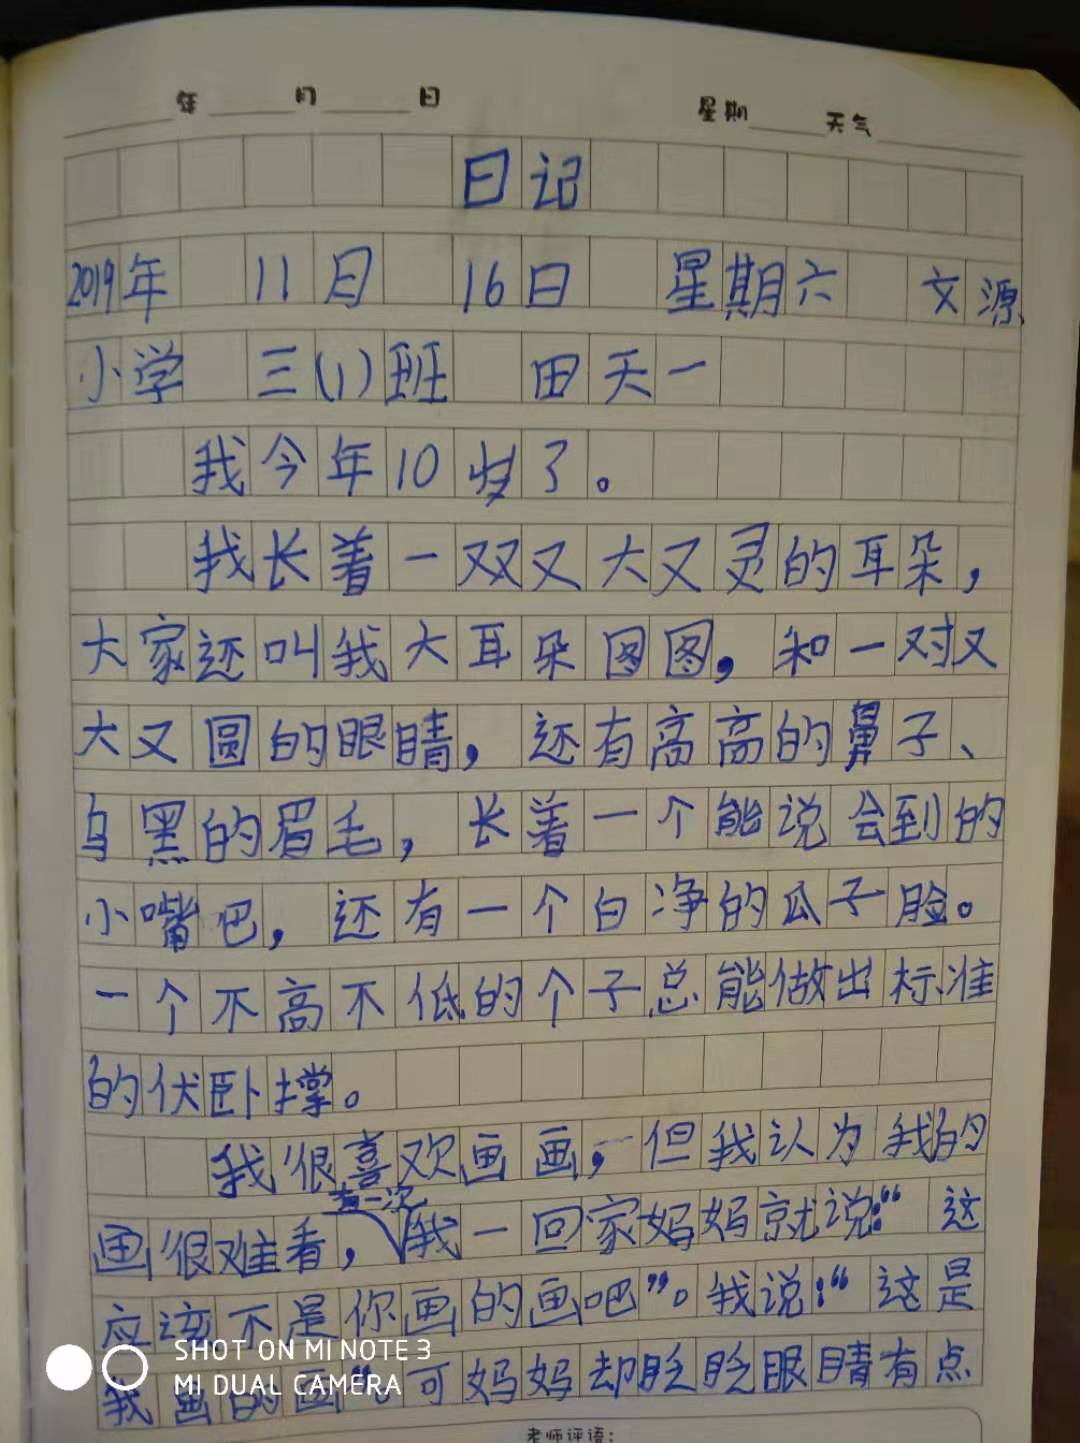 年 月 日 星期 天气
日记
2019年 11月 16日 星期六 文源
小学 三(1)班 田天一
我今年10岁了。
我长着一双又大又灵的耳朵,
大家还叫我大耳朵图图,和一对又
大又圆的眼睛,还有高高的鼻子、
乌黑的眉毛,长着一个能说会到的
小嘴巴,还有一个白净的瓜子脸。
一个不高不低的个子总能做出标准
的伏卧撑。
我很喜欢画画,但我认为我的
有一次
画很难看,我一回家妈妈就说:“这
应该不是你画的画吧”。我说:“这是
我画的画“。可妈妈却眨眨眼睛有点
老师评语:
SHOT ON MI NOTE 3
MI DUAL CAMERA